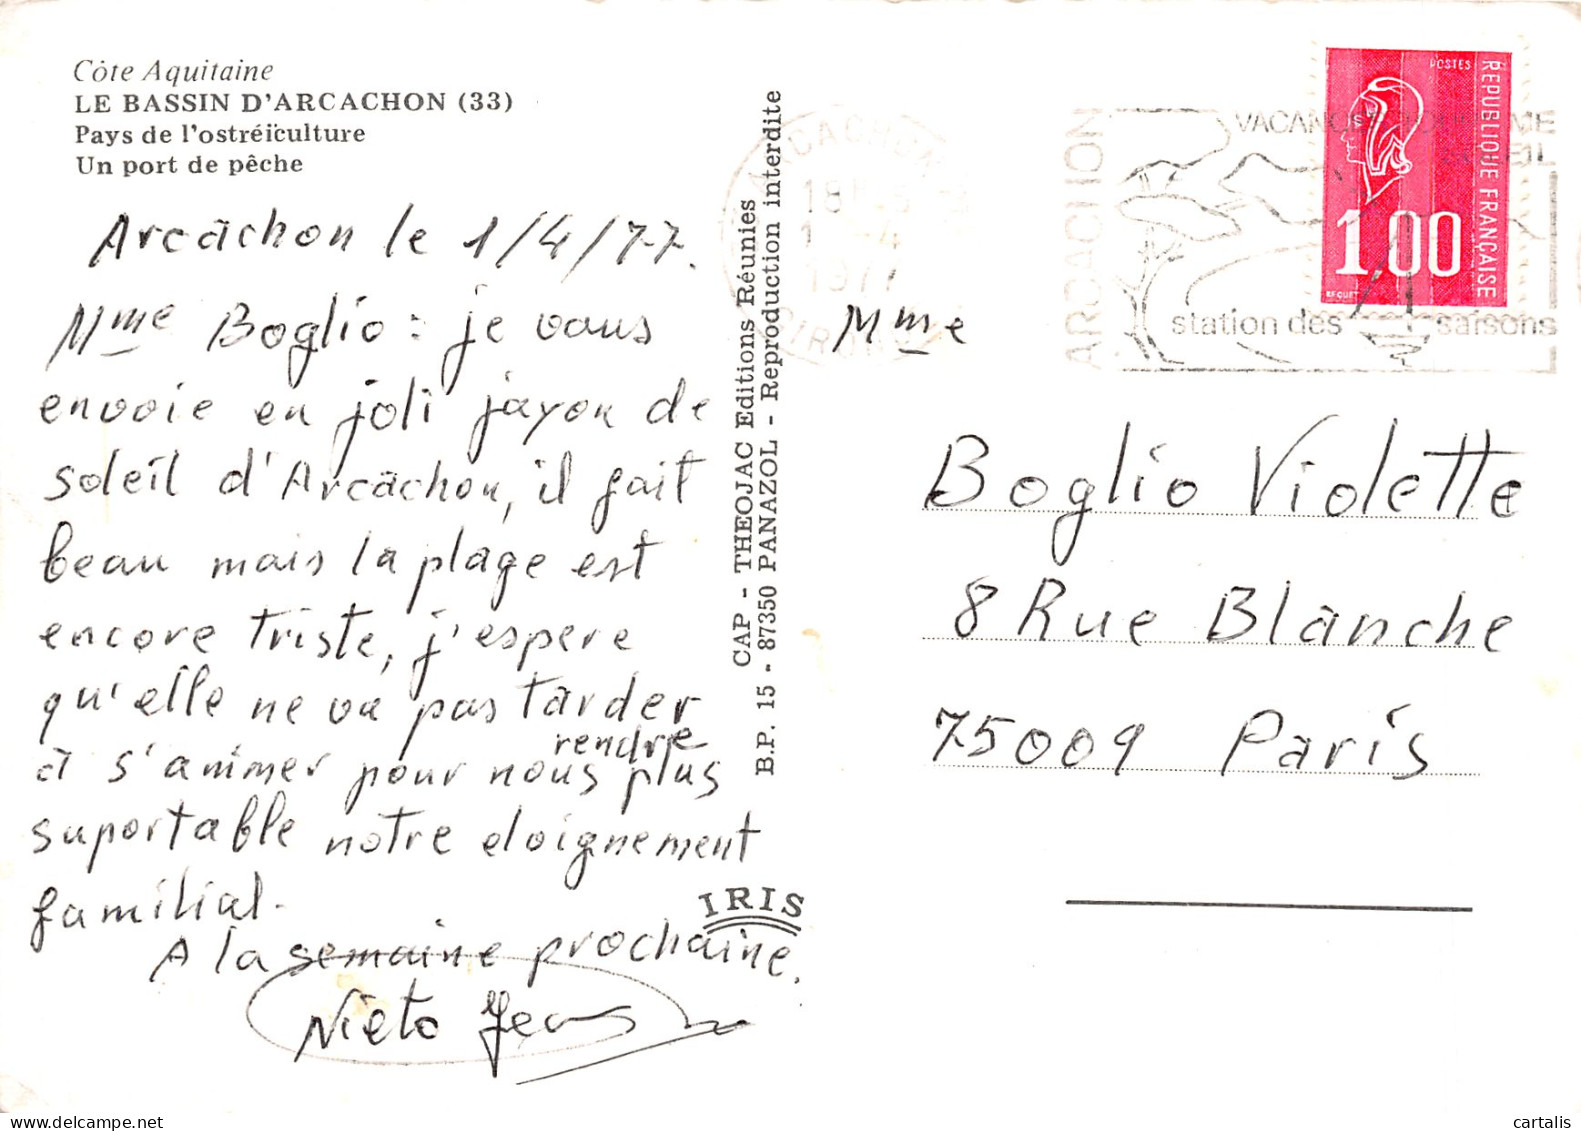 Côte Aquitaine
LE BASSIN D'ARCACHON (33)
Pays de l'ostréiculture
Un port de pêche
Arcachon le 1/4/77.
Mme Boglio : je vous
envoie en joli jayon de
soleil d'Arcachon, il fait
beau mais la plage est
encore triste, j'espere
qu'elle ne va pas tarder
à s'animer pour nous rendre plus
suportable notre eloignement
familial.
A la semaine prochaine.
Nieto Jean
CAP - THEOJAC Editions Réunies
B.P. 15 - 87350 PANAZOL - Reproduction interdite
IRIS
ARCACHON
18H
1977
GIRONDE
ARCACHON
station des saisons
POSTES
REPUBLIQUE FRANÇAISE
1,00
BEQUET
Mme
Boglio Violette
8 Rue Blanche
75009 Paris
cartalis